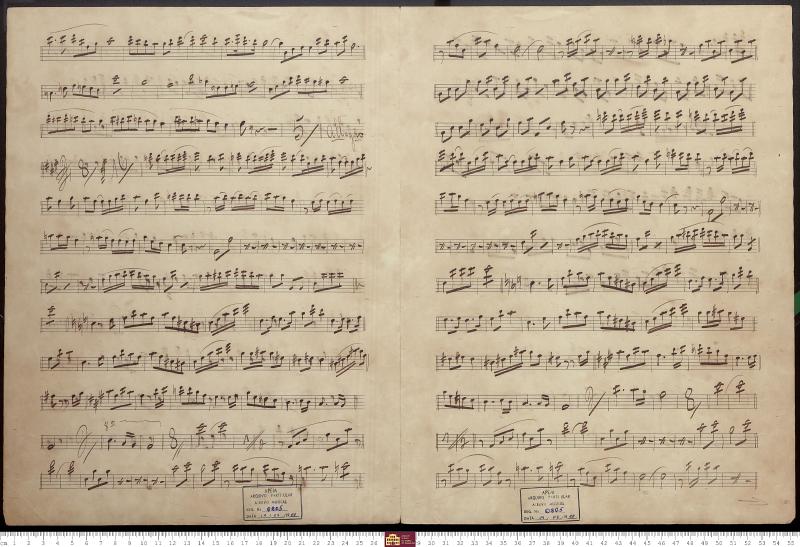 5/
Allegro
8ª
APEIA
ARQUIVO PARTICULAR
ACERVO MUSICAL
REG. No. 0805
APEIA
ARQUIVO PARTICULAR
ACERVO MUSICAL
REG. No. 0805
cm 1 2 3 4 5 6 7 8 9 10 11 12 13 14 15 16 17 18 19 20 21 22 23 24 25 26 29 30 31 32 33 34 35 36 37 38 39 40 41 42 43 44 45 46 47 48 49 50 51 52 53 54 55